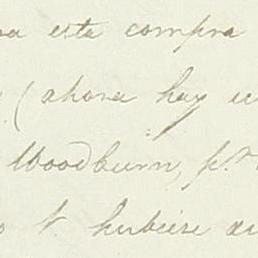 esta compra
(ahora hay
Woodburn, p.r
hubiese